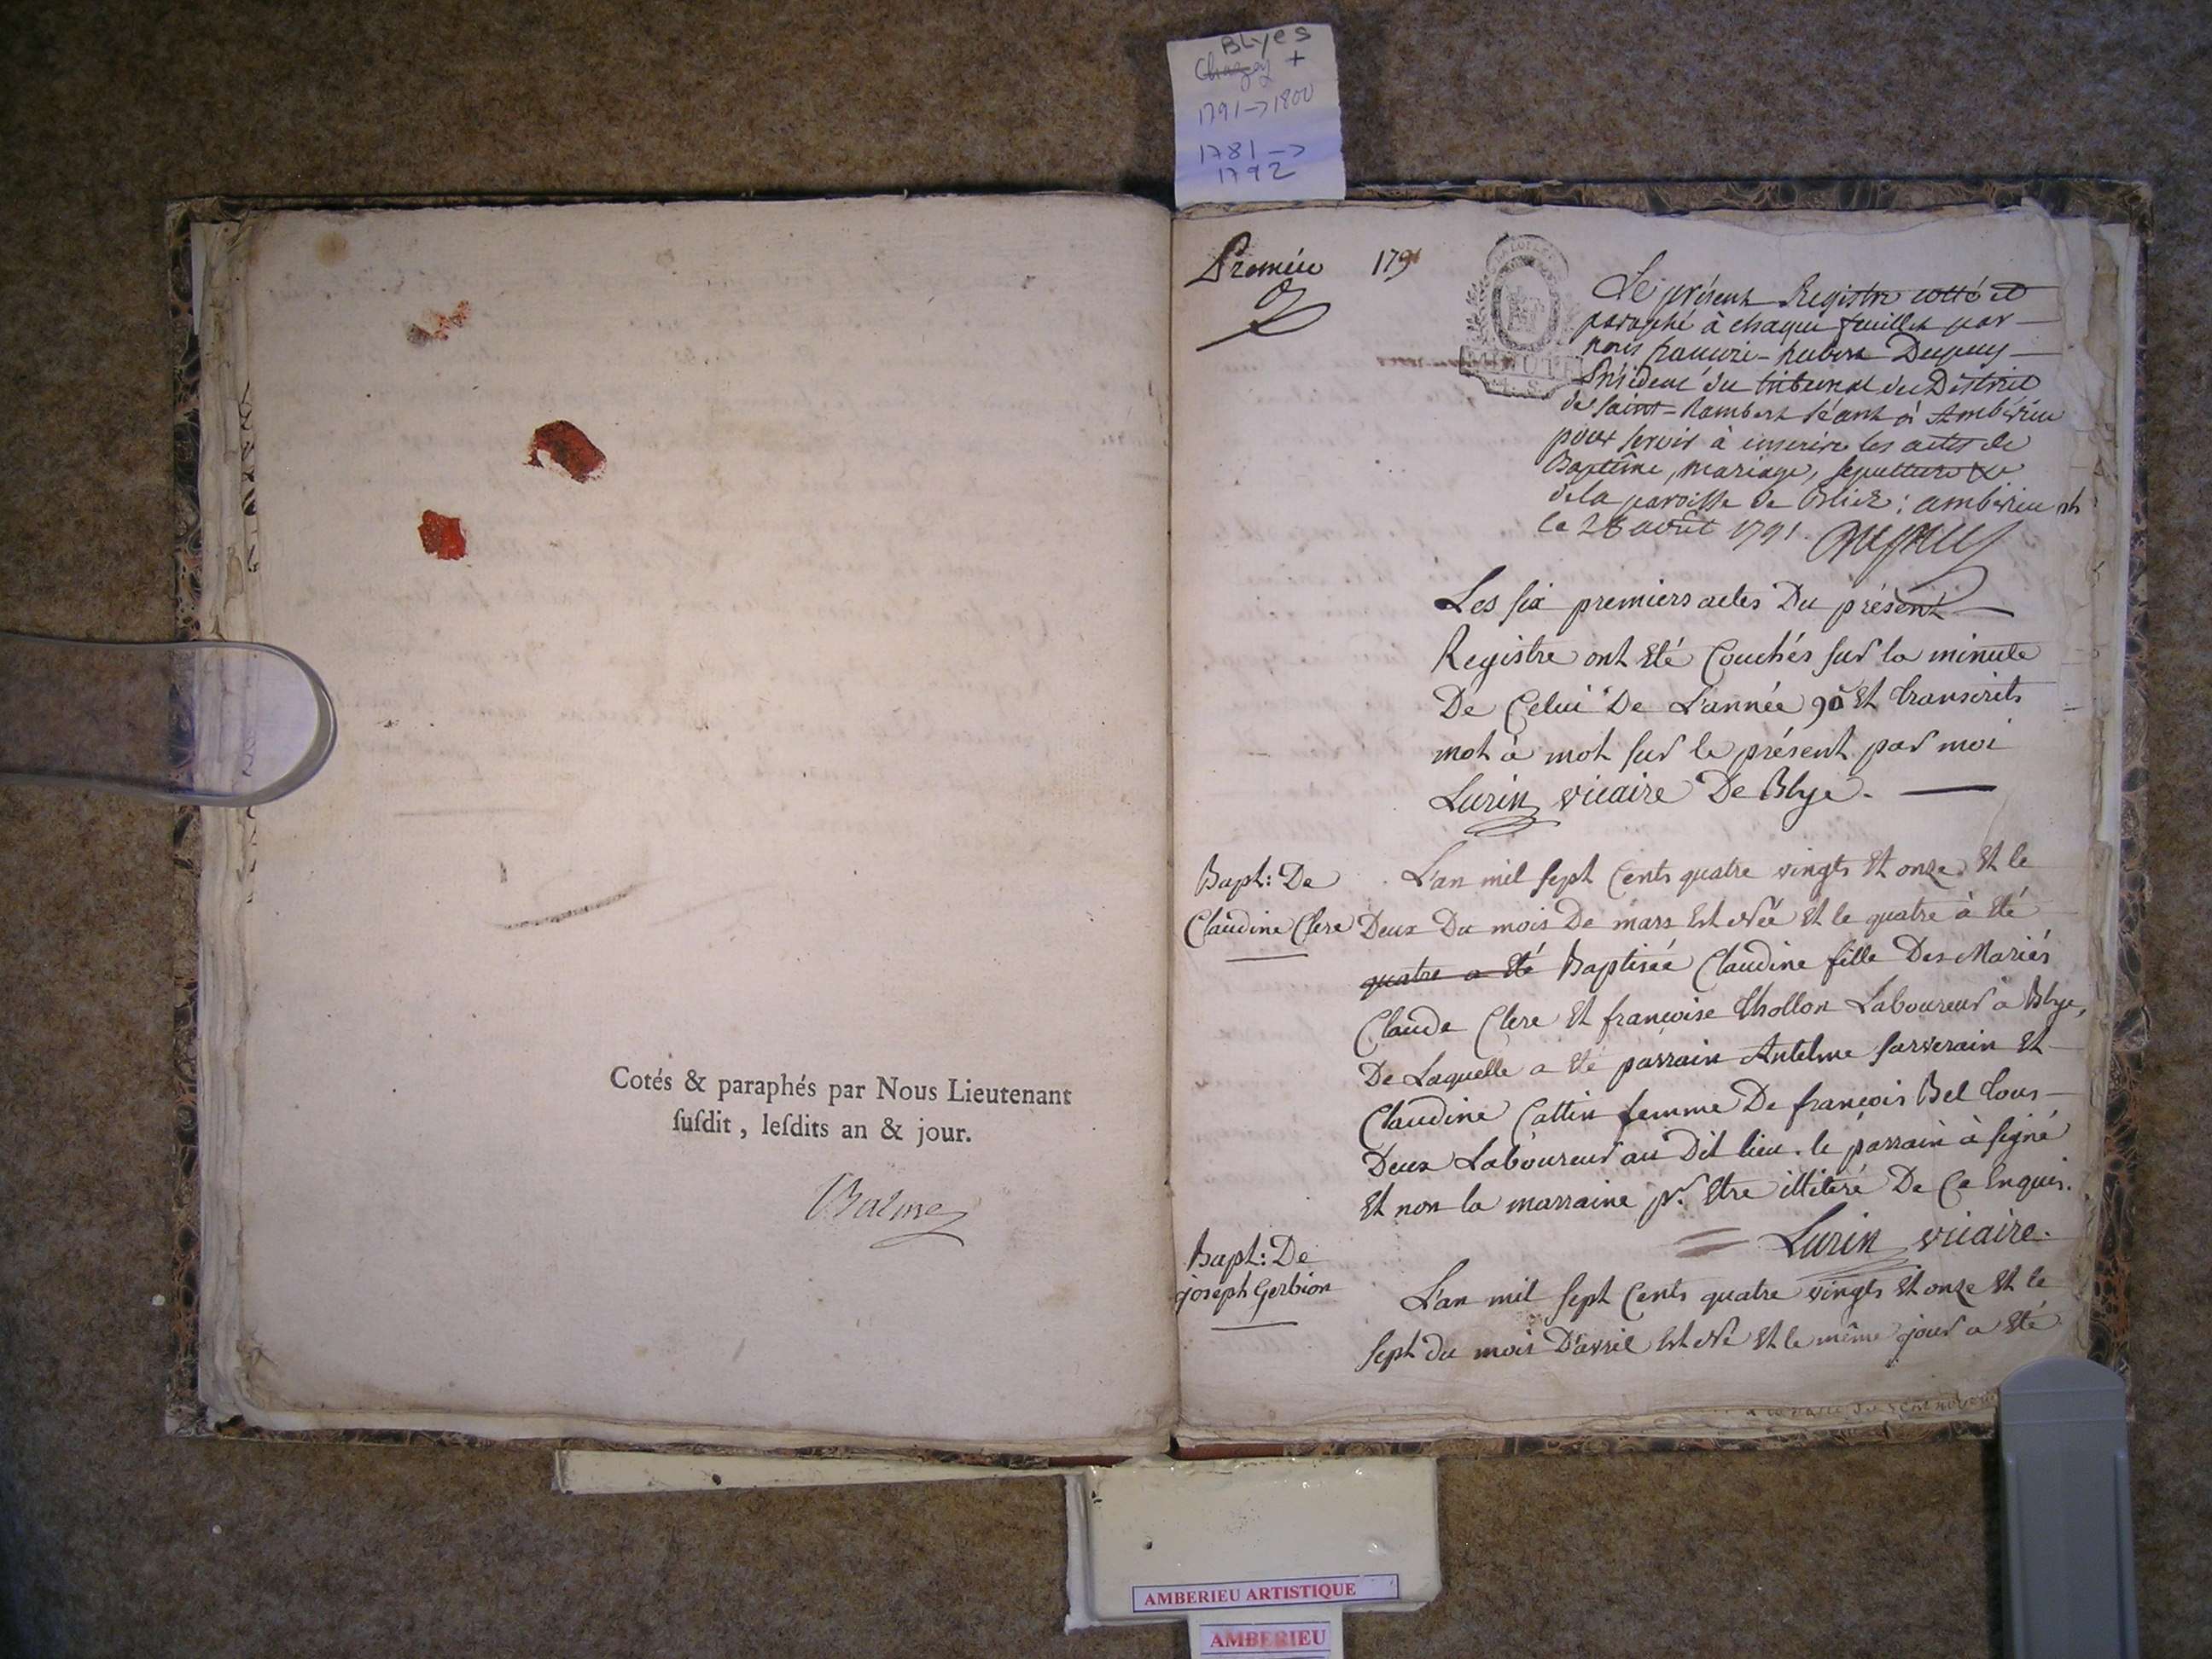 BLyes
Chazey +
1791->1800
1781->
1792
Cotés & paraphés par Nous Lieutenant
ſuſdit, leſdits an & jour.
Balme
Premier 1791
MINUTE
Le présent Registre cotté et
paraphé à chaque feuillet par
nous françois-hubert Dupuy
Président du tribunal du District
de saint-Rambert séant à Ambérieu
pour servir à inscrire les actes de
Baptême, mariage, sepulture &c
de la paroisse de Bliez : ambérieu
le 28 avût 1791. Dupuy
Les six premiers actes Du présent
Registre ont Eté Couchés sur la minute
De Celui De L'année 90 Et transcrits
mot à mot sur le présent par moi
Lurin vicaire De Blye.
Bapt: De
Claudine Clere
L'an mil sept Cents quatre vingts Et onze Et le
Deux Du mois De mars Est Née Et le quatre à Eté
quatre a Eté Baptisée Claudine fille Des Mariés
Claude Clere Et francoise thollon Laboureur à Blye,
De Laquelle a Eté parrain Antelme sarverain Et
Claudine Cattin femme De francois Bel tous
Deux Laboureur au Dit lieu. le parrain à signé
Et non la marraine pr. Etre illiteré De Ce Enquis.
Lurin vicaire.
Bapt: De
joseph Gerbion
L'an mil sept Cents quatre vingts Et onze Et le
sept du mois D'avril Est Né Et le même jour a Eté
AMBERIEU ARTISTIQUE
AMBERIEU